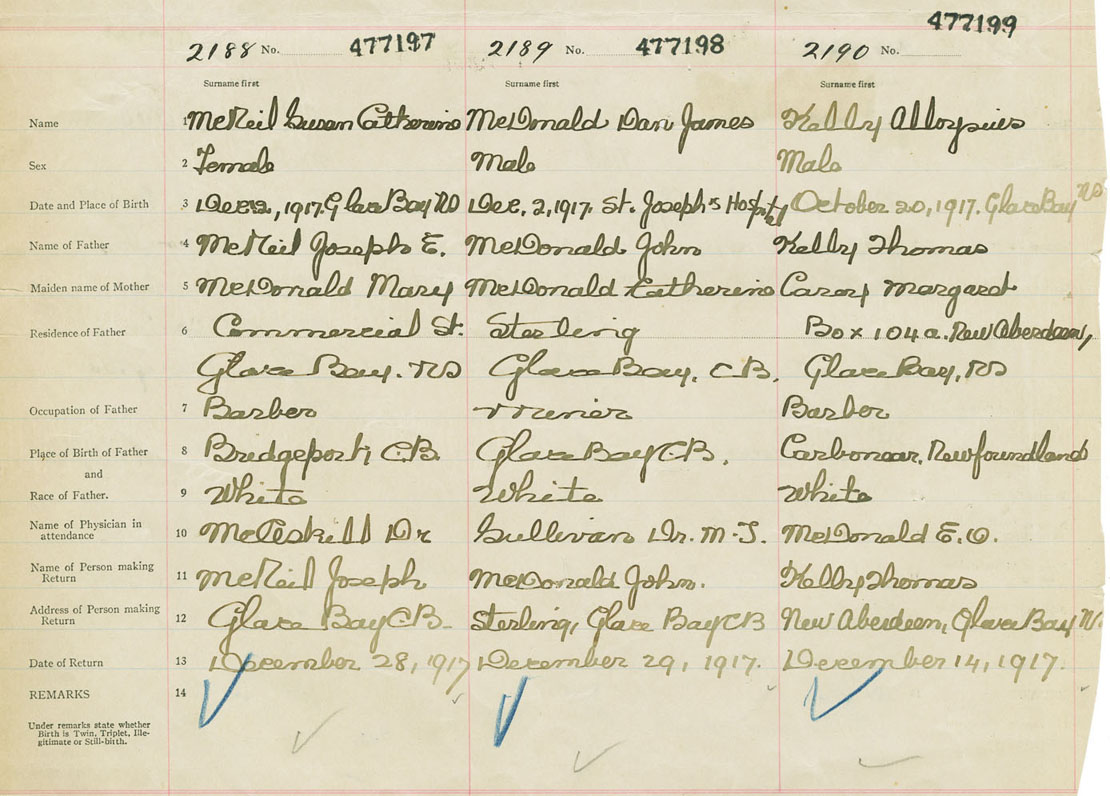 2188 No. 477197 2189 No. 477198 2190 No. 477199
Surname first Surname first Surname first
Name 1 McNeil Susan Catherine McDonald Dan James Kelly Alloysius
Sex 2 Female Male Male
Date and Place of Birth 3 1917. Glace Bay NS Dec, 2, 1917. St. Joseph's Hospital October 20, 1917. Glace Bay NS
Name of Father 4 McNeil Joseph E. McDonald John Kelly Thomas
Maiden name of Mother 5 McDonald Mary McDonald Catherine Carey Margaret
Residence of Father 6 Commercial St. Sterling Box 104a. New Aberdeen,
Glace Bay. NS Glace Bay, C B, Glace Bay, NS
Occupation of Father 7 Barber Miner Barber
Place of Birth of Father 8 Bridgeport, C.B. Glace Bay C.B. Carbonear, Newfoundland
and
Race of Father. 9 White White White
Name of Physician in
attendance 10 Dr Sullivan Dr. M. J. McDonald E. O.
Name of Person making
Return 11 McNeil Joseph McDonald John. Kelly Thomas
Address of Person making
Return 12 Glace Bay C B. Sterling, Glace Bay C B New Aberdeen, Glace Bay
Date of Return 13 December 28, 1917 December 29, 1917. December 14, 1917.
REMARKS 14
Under remarks state whether
Birth is Twin, Triplet, Ille-
gitimate or Still-birth.